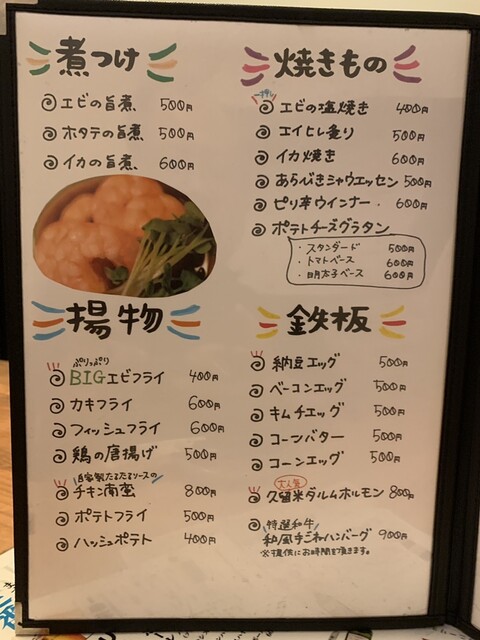 煮つけ
エビの旨煮 500円
ホタテの旨煮 500円
イカの旨煮 600円
焼きもの
一押し
エビの塩焼き 400円
エイヒレ炙り 500円
イカ焼き 600円
あらびきシャウエッセン 500円
ピリ辛ウインナー 600円
ポテトチーズグラタン
・スタンダード 500円
・トマトベース 600円
・明太子ベース 600円
揚物
ぷりっぷり
BIGエビフライ 400円
カキフライ 600円
フィッシュフライ 600円
鶏の唐揚げ 500円
自家製たるたるソースの
チキン南蛮 800円
ポテトフライ 500円
ハッシュポテト 400円
鉄板
納豆エッグ 500円
ベーコンエッグ 500円
キムチエッグ 500円
コーンバター 500円
コーンエッグ 500円
大人気
久留米ダルムホルモン 800円
特選和牛
和風手ごねハンバーグ 900円
※提供にお時間を頂きます。